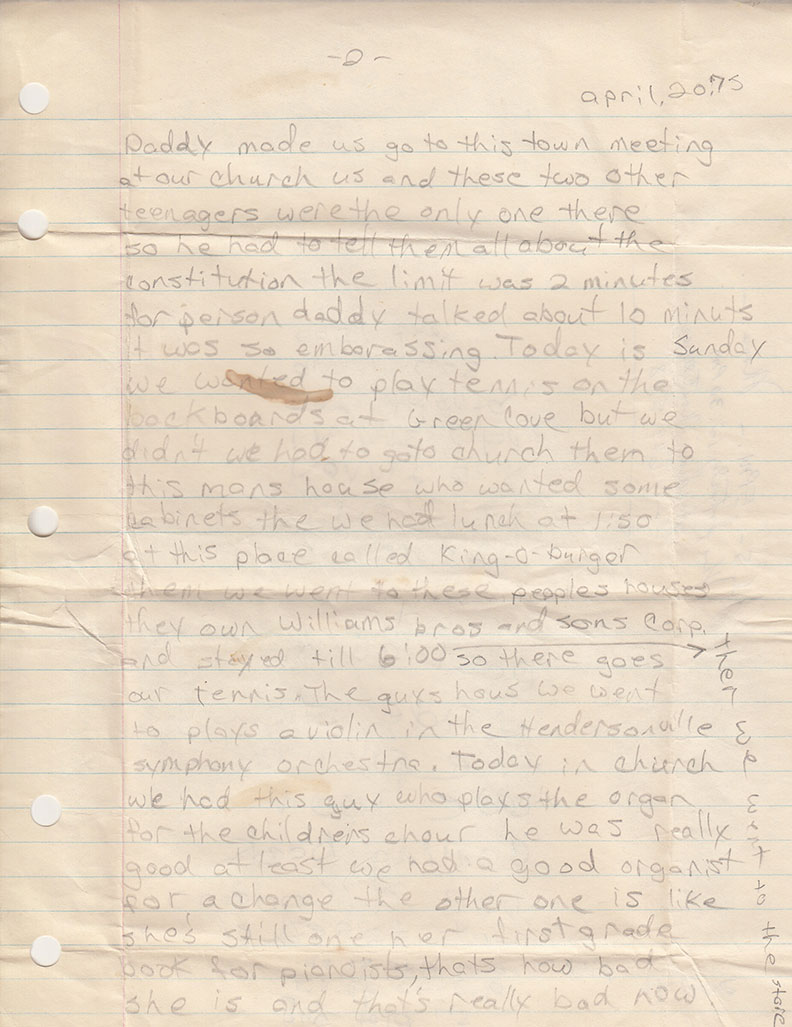 -2-
april, 20, 75
Daddy made us go to this town meeting
at our church us and these two other
teenagers were the only one there
so he had to tell them all about the
constitution the limit was 2 minutes
for person daddy talked about 10 minuts
it was so embarassing. Today is Sunday
we wanted to play tennis on the
backboards at Green Cove but we
didn't we had to goto church them to
this mans house who wanted some
cabinets the we had lunch at 1:50
at this place called King-O-burger
them we went to these peoples houses
they own Williams bros and sons Corp.
and stayed till 6:00 so there goes
our tennis. The guys hous we went
to plays a violin in the Hendersonville
symphony orchestra. Today in church
we had this guy who plays the organ
for the children's chour he was really
good at least we had a good organist
for a change the other one is like
she's still one her first grade
book for pianoists, thats how bad
she is and that's really bad now
then went to the store